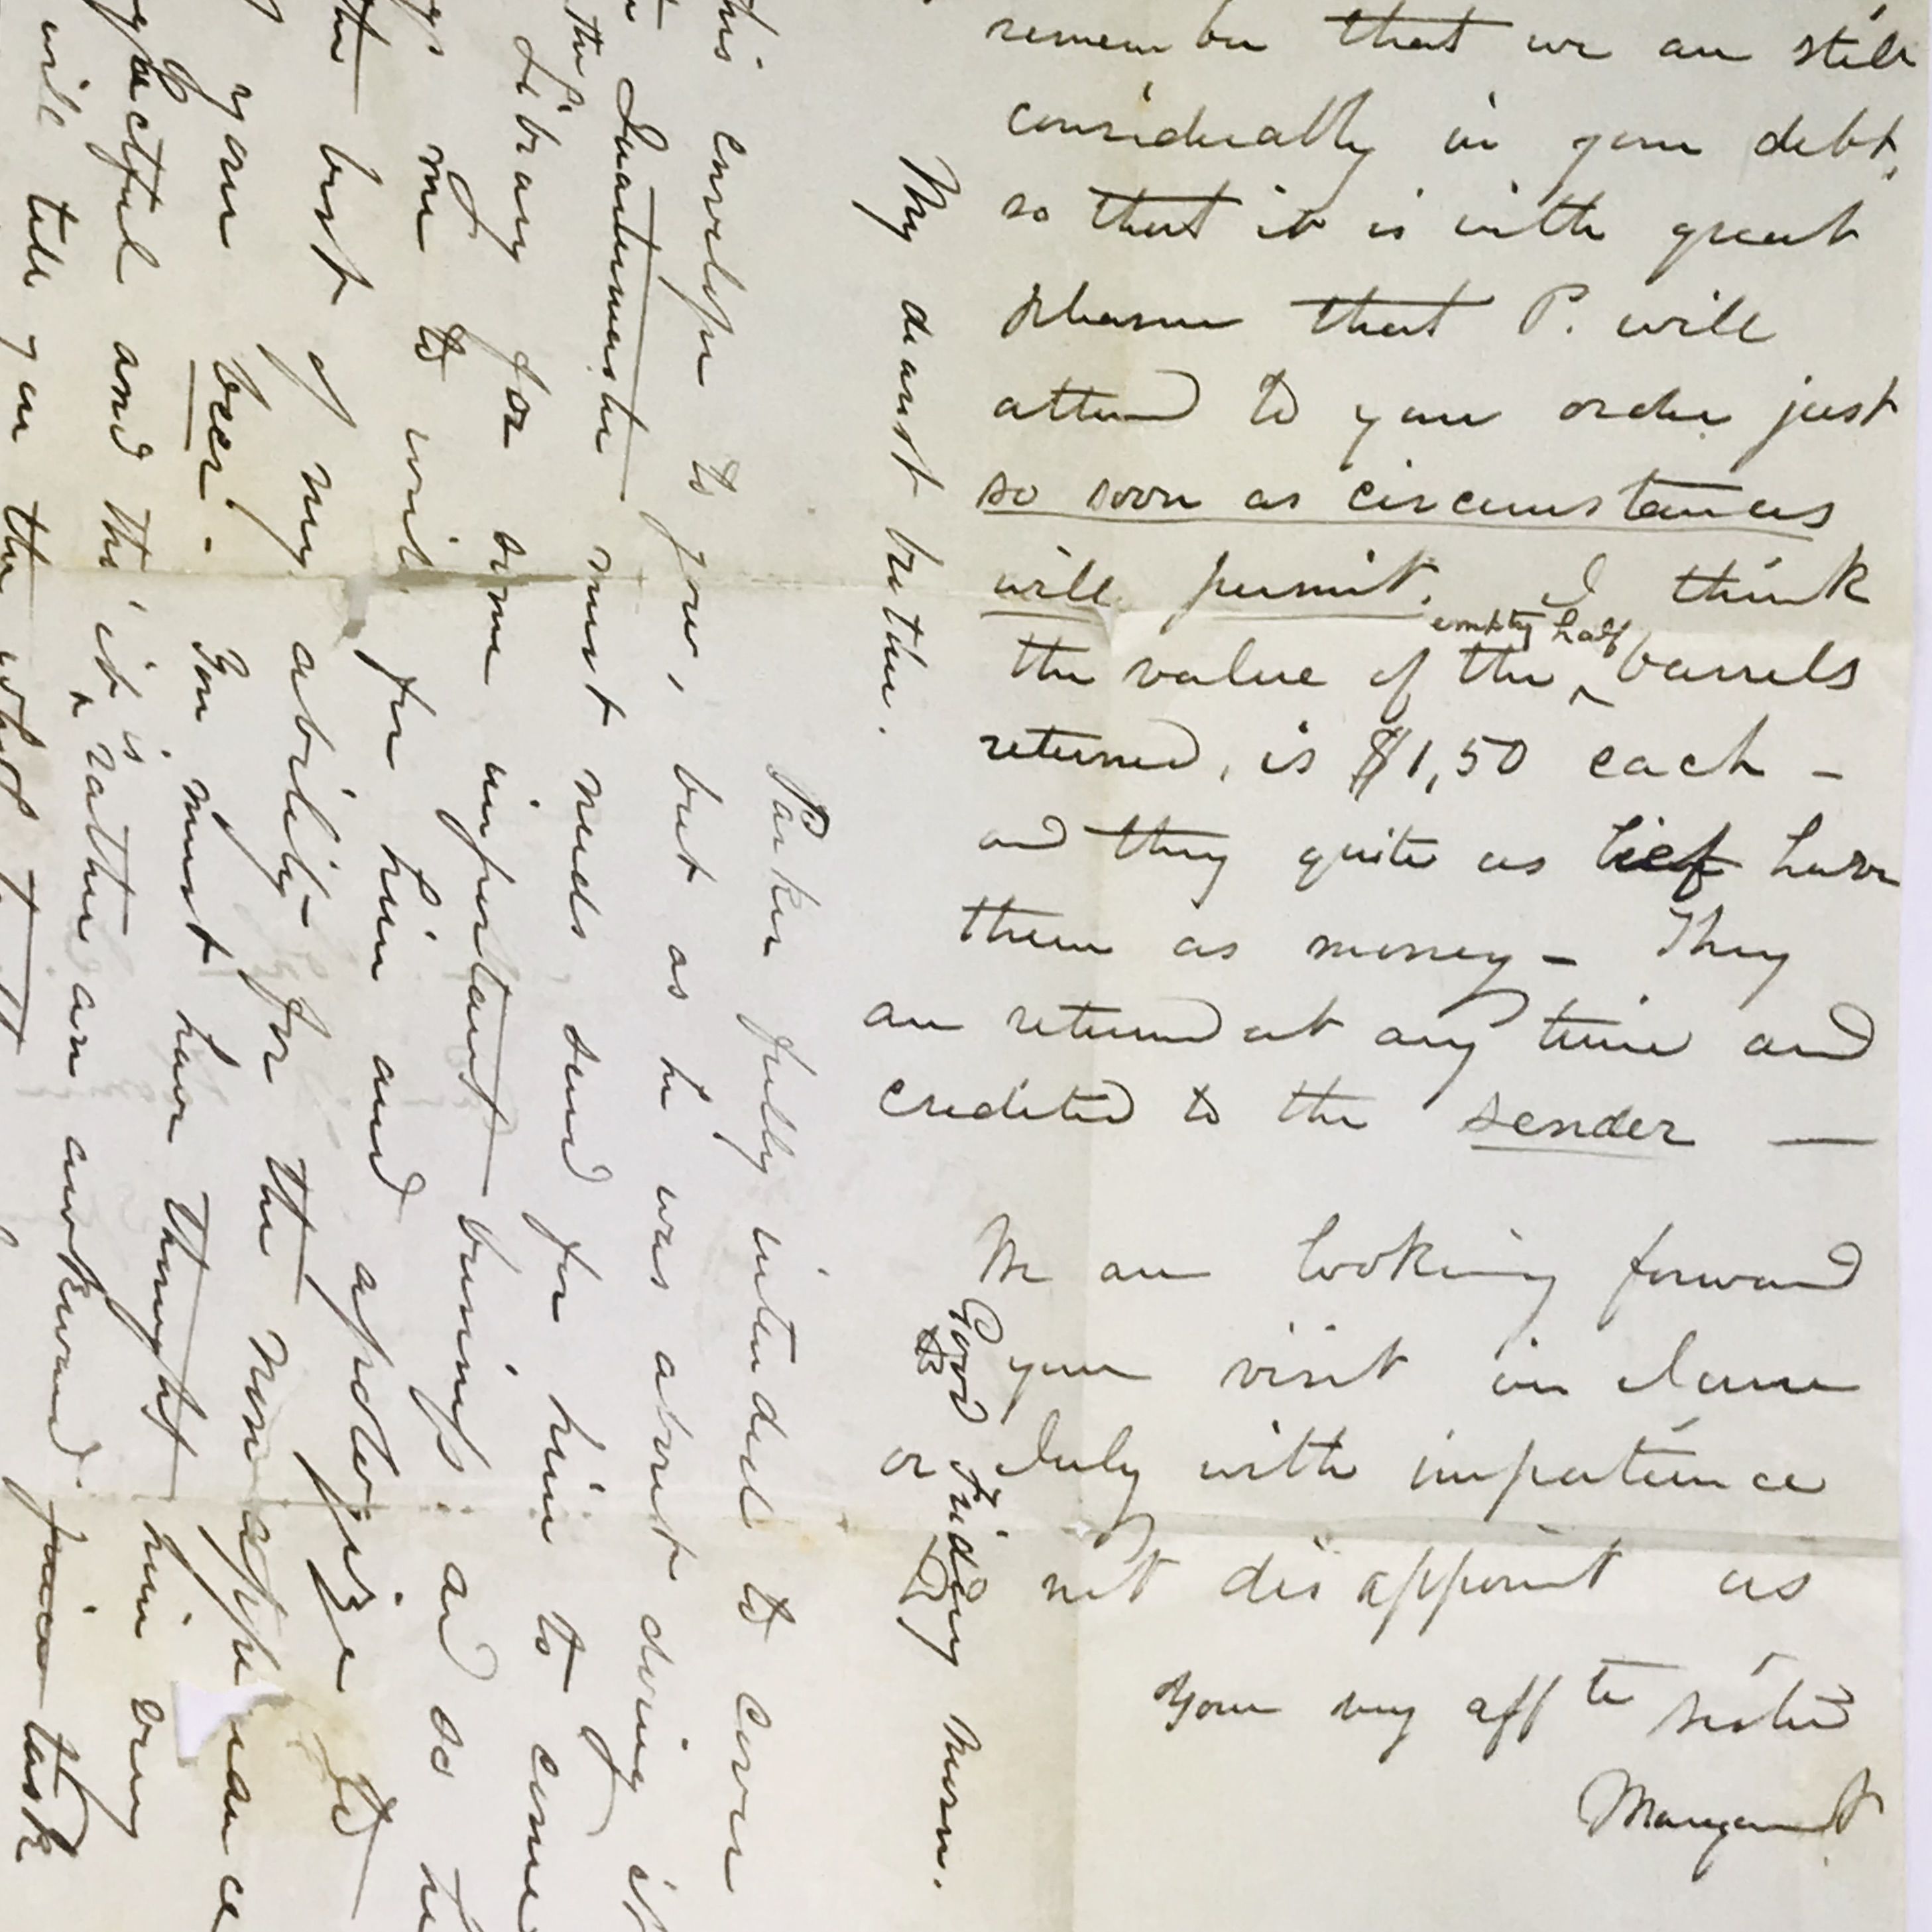 Good Friday morn.
My dearest brother.
Parker fully intended to cover
this envelope to you, but as he was about doing it
Quartermaster must needs send for him to come
the Library for some important business: and so he
me to write for him and apologize to
the best of my ability for the non appearance
your beer. You must have thought him very
and tho' it is rather an awkward task
will tell you the
remember that we are still
considerably in your debt,
so that it is with great
pleasure that P. will
attend to your order just
so soon as circumstances
will permit. I think
the value of the empty half barrels
returned, is $1,50 each –
and they quite as lief have
them as money – They
are returned at any time and
credited to the sender —
We are looking forward
to your visit in June
or July with impatience
Do not disappoint us
Your very aff te sister
Margaret